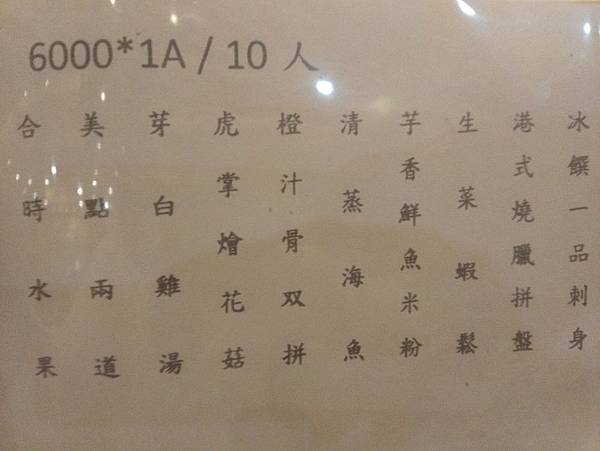 6000*1A / 10 人
冰饌一品刺身
港式燒臘拼盤
生菜蝦鬆
芋香鮮魚米粉
清蒸海魚
橙汁骨双拼
虎掌燴花菇
芽白雞湯
美點兩道
合時水果